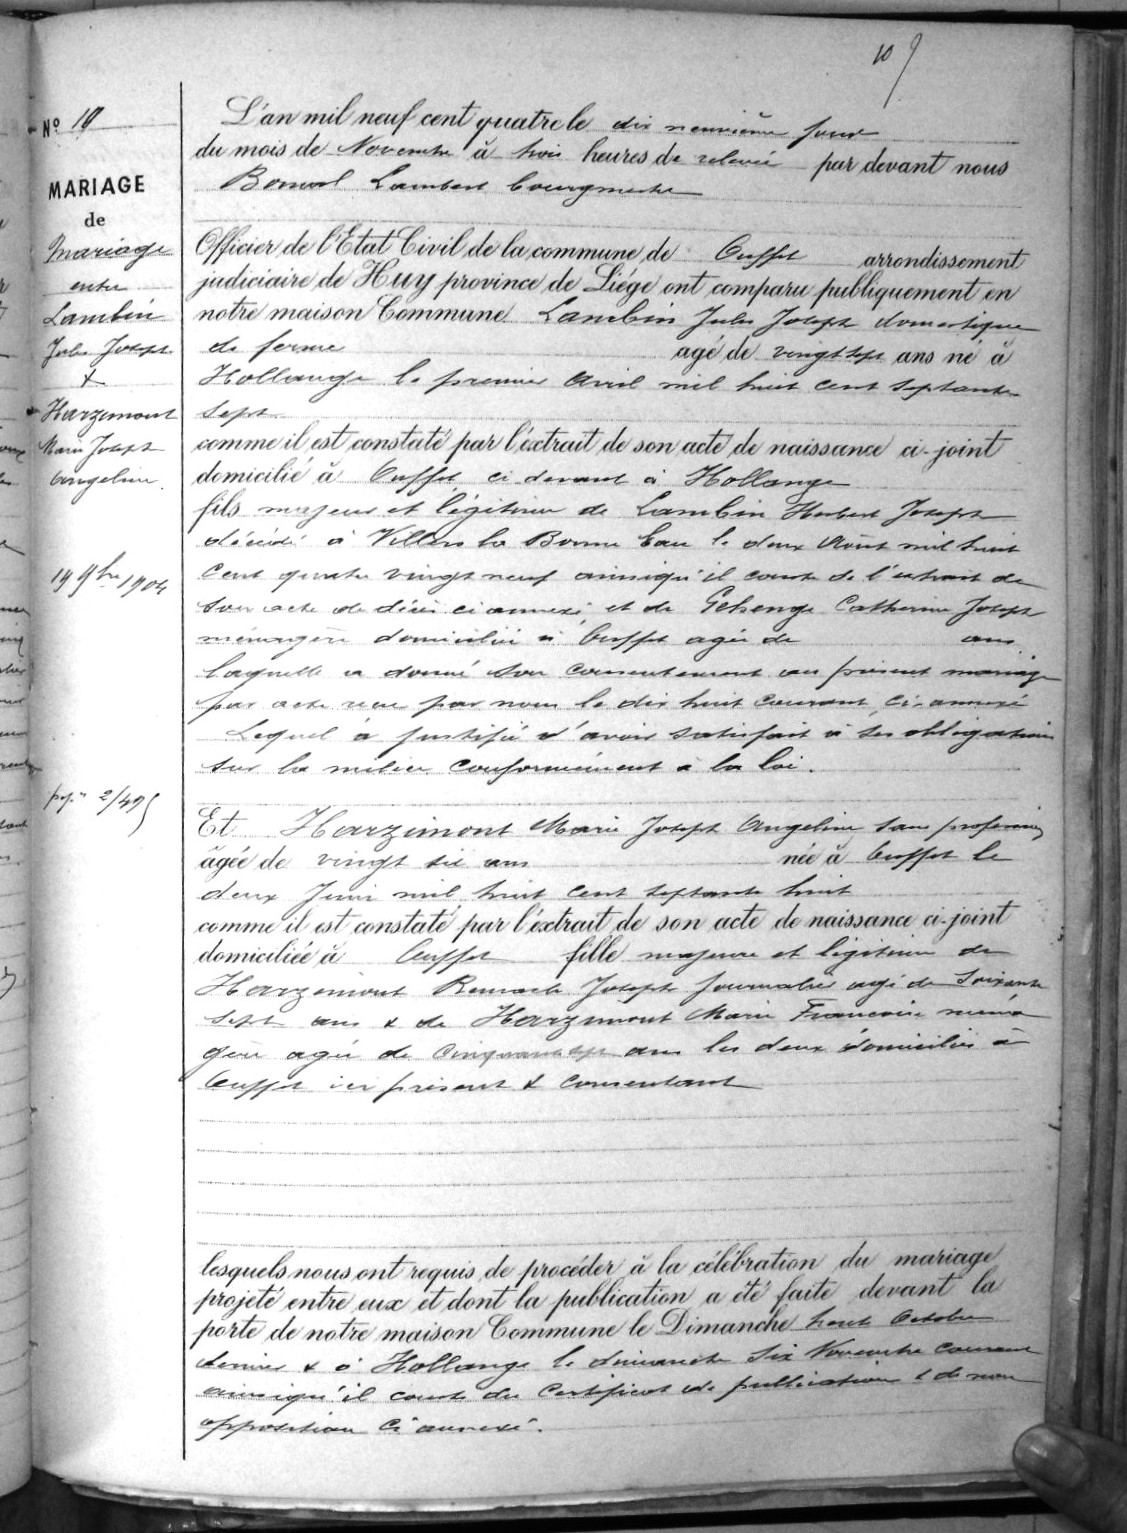 10
Nº 10
MARIAGE
de
Mariage
entre
Lambin
Jules Joseph
&
Harzimont
Marie Joseph
Angeline
19 9bre 1904
L'an mil neuf cent quatre le dix neuvième jour
du mois de Novembre à trois heures de relevée par devant nous
Bonvol Lambert bourgmestre
Officier de l'Etat Civil de la commune de Ouffet arrondissement
judiciaire de Huy province de Liége ont comparu publiquement en
notre maison Commune Lambin Jules Joseph domestique
de ferme agé de vingt sept ans né à
Hollange le premier Avril mil huit cent septante
sept
comme il est constaté par l'éxtrait de son acte de naissance ci-joint
domicilié à Ouffet ci devant à Hollange
fils majeur et légitime de Lambin Hubert Joseph
décédé à Villers la Bonne Eau le deux Août mil huit
cent quatre vingt neuf ainsiqu'il conste de l'extrait de
son acte de décès ci annexé, et de Gehenge Catherine Joseph
ménagère domiciliée à Ouffet agée de ans
laquelle a donné son consentement au présent mariage
par acte reçu par nous le dix huit courant, ci-annexé
Lequel à justifié d'avoir satisfait à ses obligations
sur la milice conformément à la loi.
Et Harzimont Marie Joseph Angeline sans profession
âgée de vingt six ans née à Ouffet le
deux Juin mil huit cent septante huit
comme il est constaté par l'éxtrait de son acte de naissance ci-joint
domiciliée à Ouffet fille majeure et légitime de
Harzimont Remacle Joseph journalier agé de soixante
sept ans & de Harzimont Marie Françoise ména
gère agée de cinquante sept ans les deux domiciliés à
Ouffet ici présent & consentant
lesquels nous ont requis de procéder à la célébration du mariage
projeté entre eux et dont la publication a été faite devant la
porte de notre maison Commune le Dimanche trent Octobre
dernier & à Hollange le dimanche six Novembre courant
ainsiqu'il conste du certificat de publication & de non
opposition ci annexé.